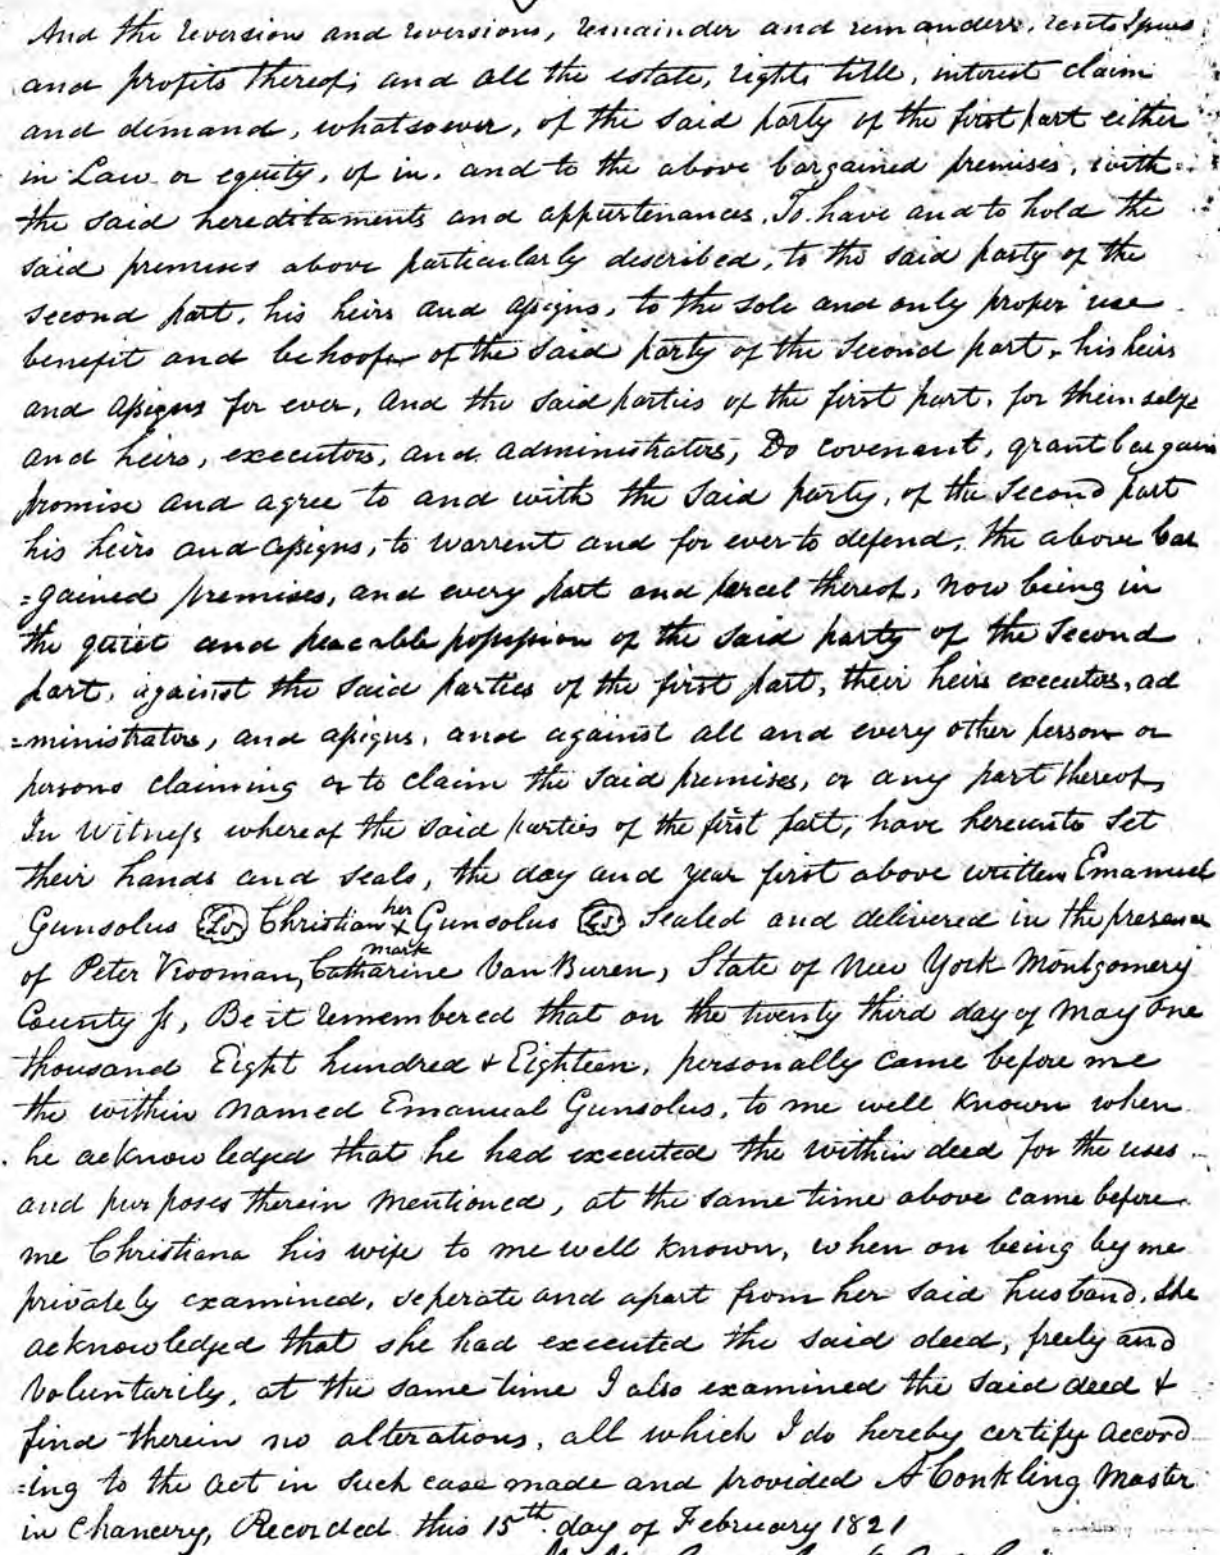 And the reversion and reversions, remainder and remanders, rents Issues
and profits thereof; and all the estate, right title, interest claim
and demand, whatsoever, of the said party of the first part either
in Law or equity, of in, and to the above bargained premises, with
the said hereditaments and appurtenances, To have and to hold the
said premises above particularly described, to the said party of the
second part, his heirs and assigns, to the sole and only proper use
benefit and behoofe of the said party of the second part, his heirs
and assigns for ever, and the said parties of the first part, for themselfs
and heirs, executors, and administrators, Do covenant, grant bargain
promise and agree to and with the said party, of the second part
his heirs and assigns, to warrent and for ever to defend, the above bar
=gained premises, and every part and parcel thereof, now being in
the quiet and peacable possession of the said party of the second
part, against the said parties of the first part, their heirs executors, ad
=ministrators, and assigns, and against all and every other person or
persons claiming or to claim the said premises, or any part thereof,
In Witness whereof the said parties of the first patt, have hereunto set
their hands and seals, the day and year first above written Emanuel
Gunsolus LS Christian her x Gunsolus LS Sealed and delivered in the presence
mark
of Peter Vrooman, Catharine Van Buren, State of New York Montgomery
County ss, Be it remembered that on the twenty third day of may one
thousand Eight hundred & Eighteen, personally came before me
the within named Emanual Gunsolus, to me well known when
he acknowledged that he had executed the within deed for the uses
and purposes therein mentioned, at the same time above came before
me Christiana his wife to me well known, when on being by me
privately examined, seperate and apart from her said husband, she
acknowledged that she had executed the said deed, freely and
voluntarily, at the same time I also examined the said deed &
find therein no alterations, all which I do hereby certify accord
=ing to the act in such case made and provided A Conkling Master
in Chancery, Recorded this 15th day of February 1821